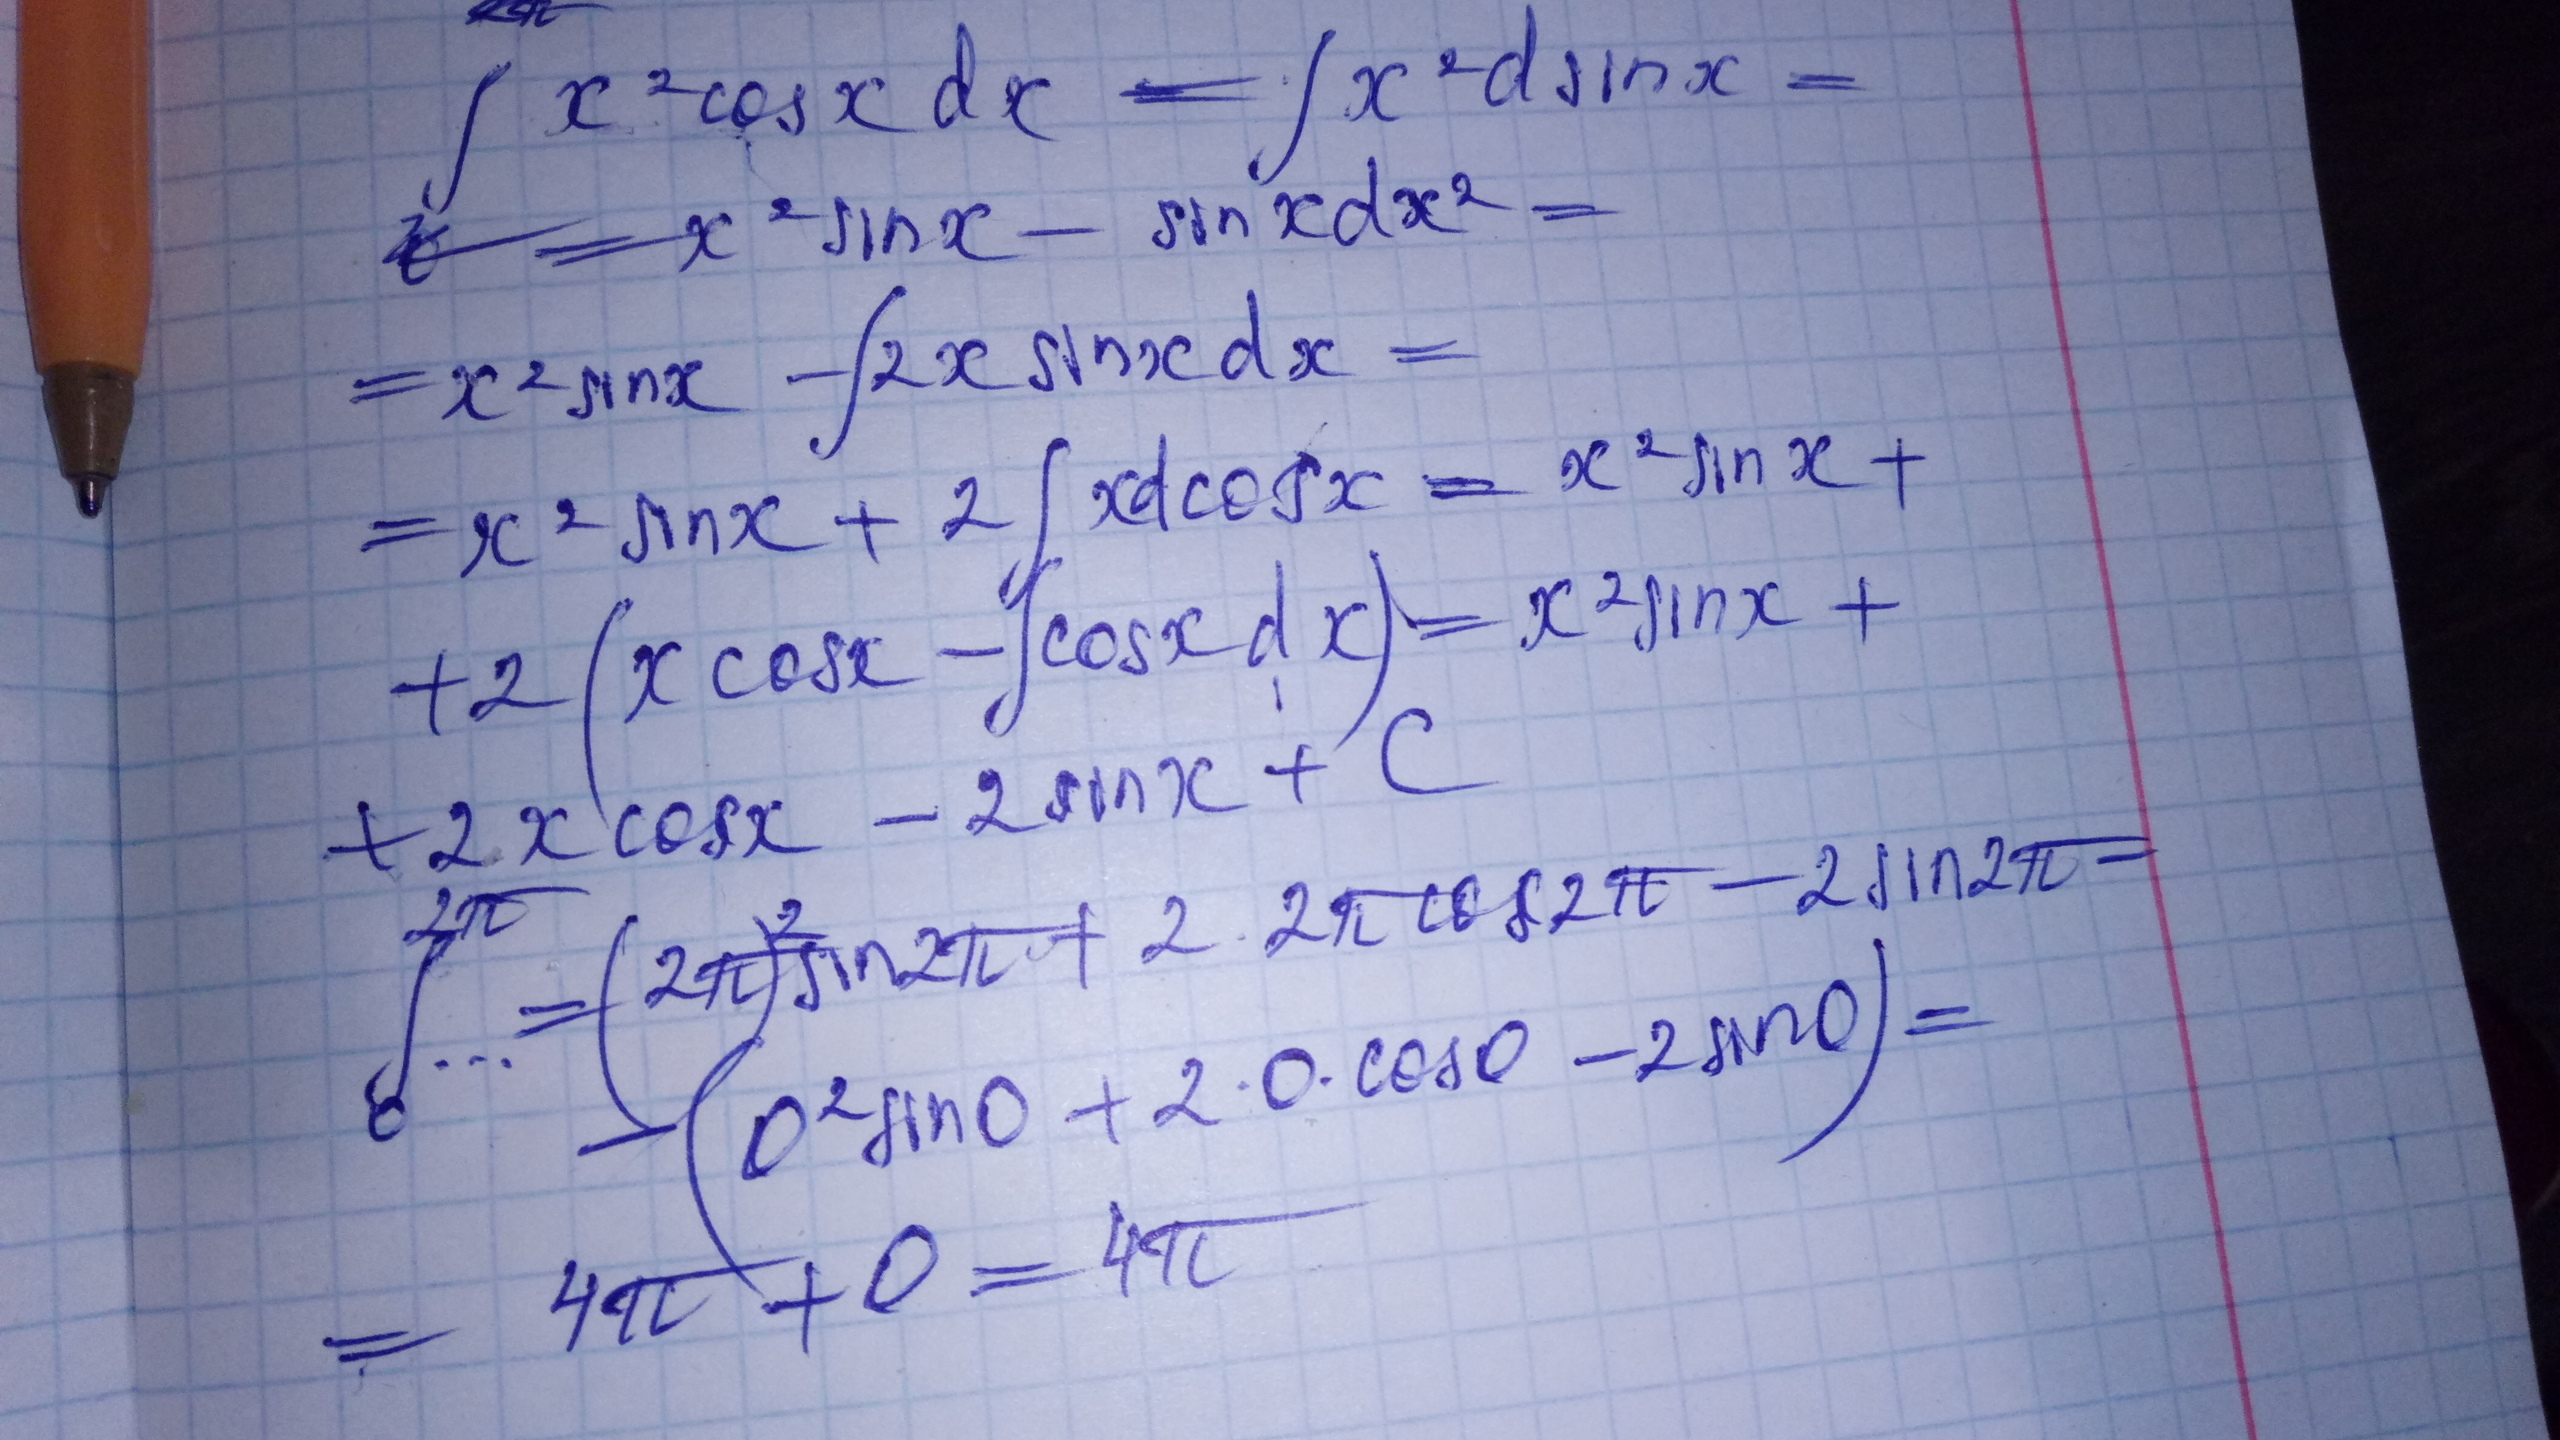 ∫ x² cosx dx = ∫ x² dsinx =
= x² sinx − sinx dx² =
= x² sinx − ∫ 2x sinx dx =
= x² sinx + 2 ∫ xdcosx = x² sinx +
+ 2 (x cosx − ∫ cosx dx) = x² sinx +
+ 2x cosx − 2 sinx + C
∫₀^2π ... = (2π)² sin2π + 2 · 2π cos2π − 2 sin2π =
− (0² sin0 + 2 · 0 · cos0 − 2 sin0) =
= 4π + 0 = 4π